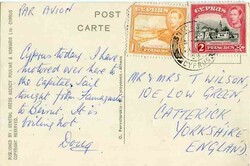 PAR AVION
POST
CARTE
CYPRUS
CYPRUS
2
PIASTRES
Cyprus today. I have
motored over here to
the Capital. Sail
tonight from Famagusta
to Beirut. It is
boiling hot.
MR & MRS T WILSON,
10E LOW GREEN,
CATTERICK,
YORKSHIRE
ENGLAND.